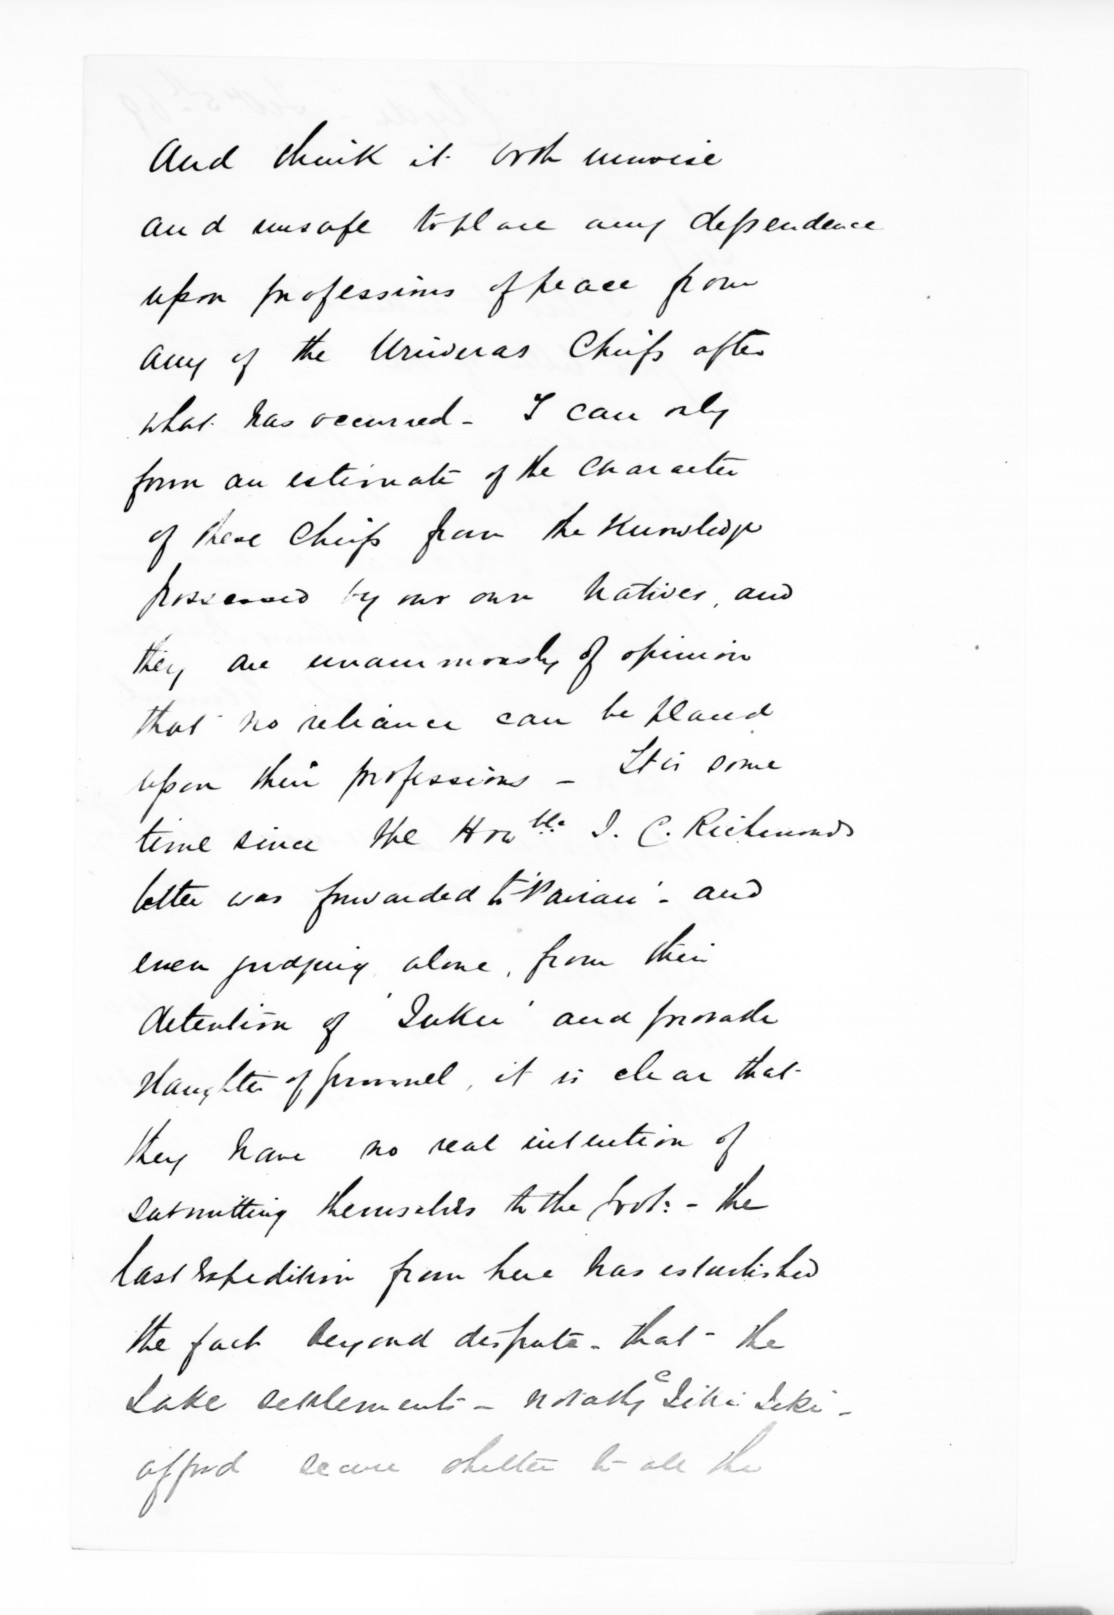 and think it both unwise
and unsafe to place any dependence
upon professions of peace from
any of the Uriweras Chiefs after
what has occurred - I can only
form an estimate of the character
of these Chiefs from the Knowledge
possessed by our own Natives, and
they are unanimously of opinion
that no reliance can be placed
upon their professions - It is some
time since the Honble. J. C. Richmonds
letter was forwarded to 'Pairau' - and
even judging alone, from their
detention of and
slaughter of it is clear that
they have no real intention of
submitting themselves to the Govt: - the
last expedition from here has established
the fact beyond dispute - that - the
Lake settlements - notably Tiki Tiki -
afford secure shelter to all the